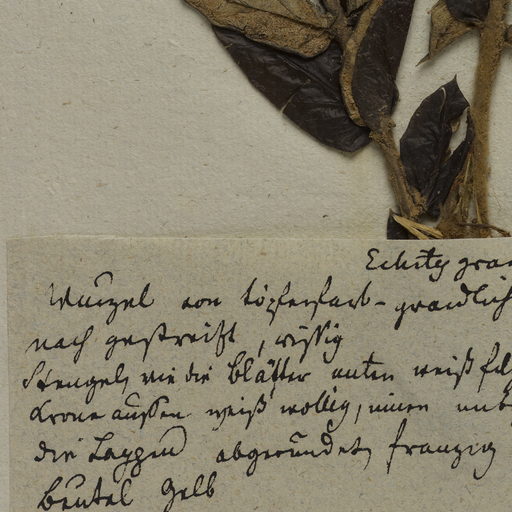 Echites gran
Wurzel von töpferfarb- graulich
nach gestreift, rissig
Stengel, wie die Blätter unten weiß fil
Krone aussen weiß wollig, innen
die Lappen abgerundet, franzig
beutel gelb